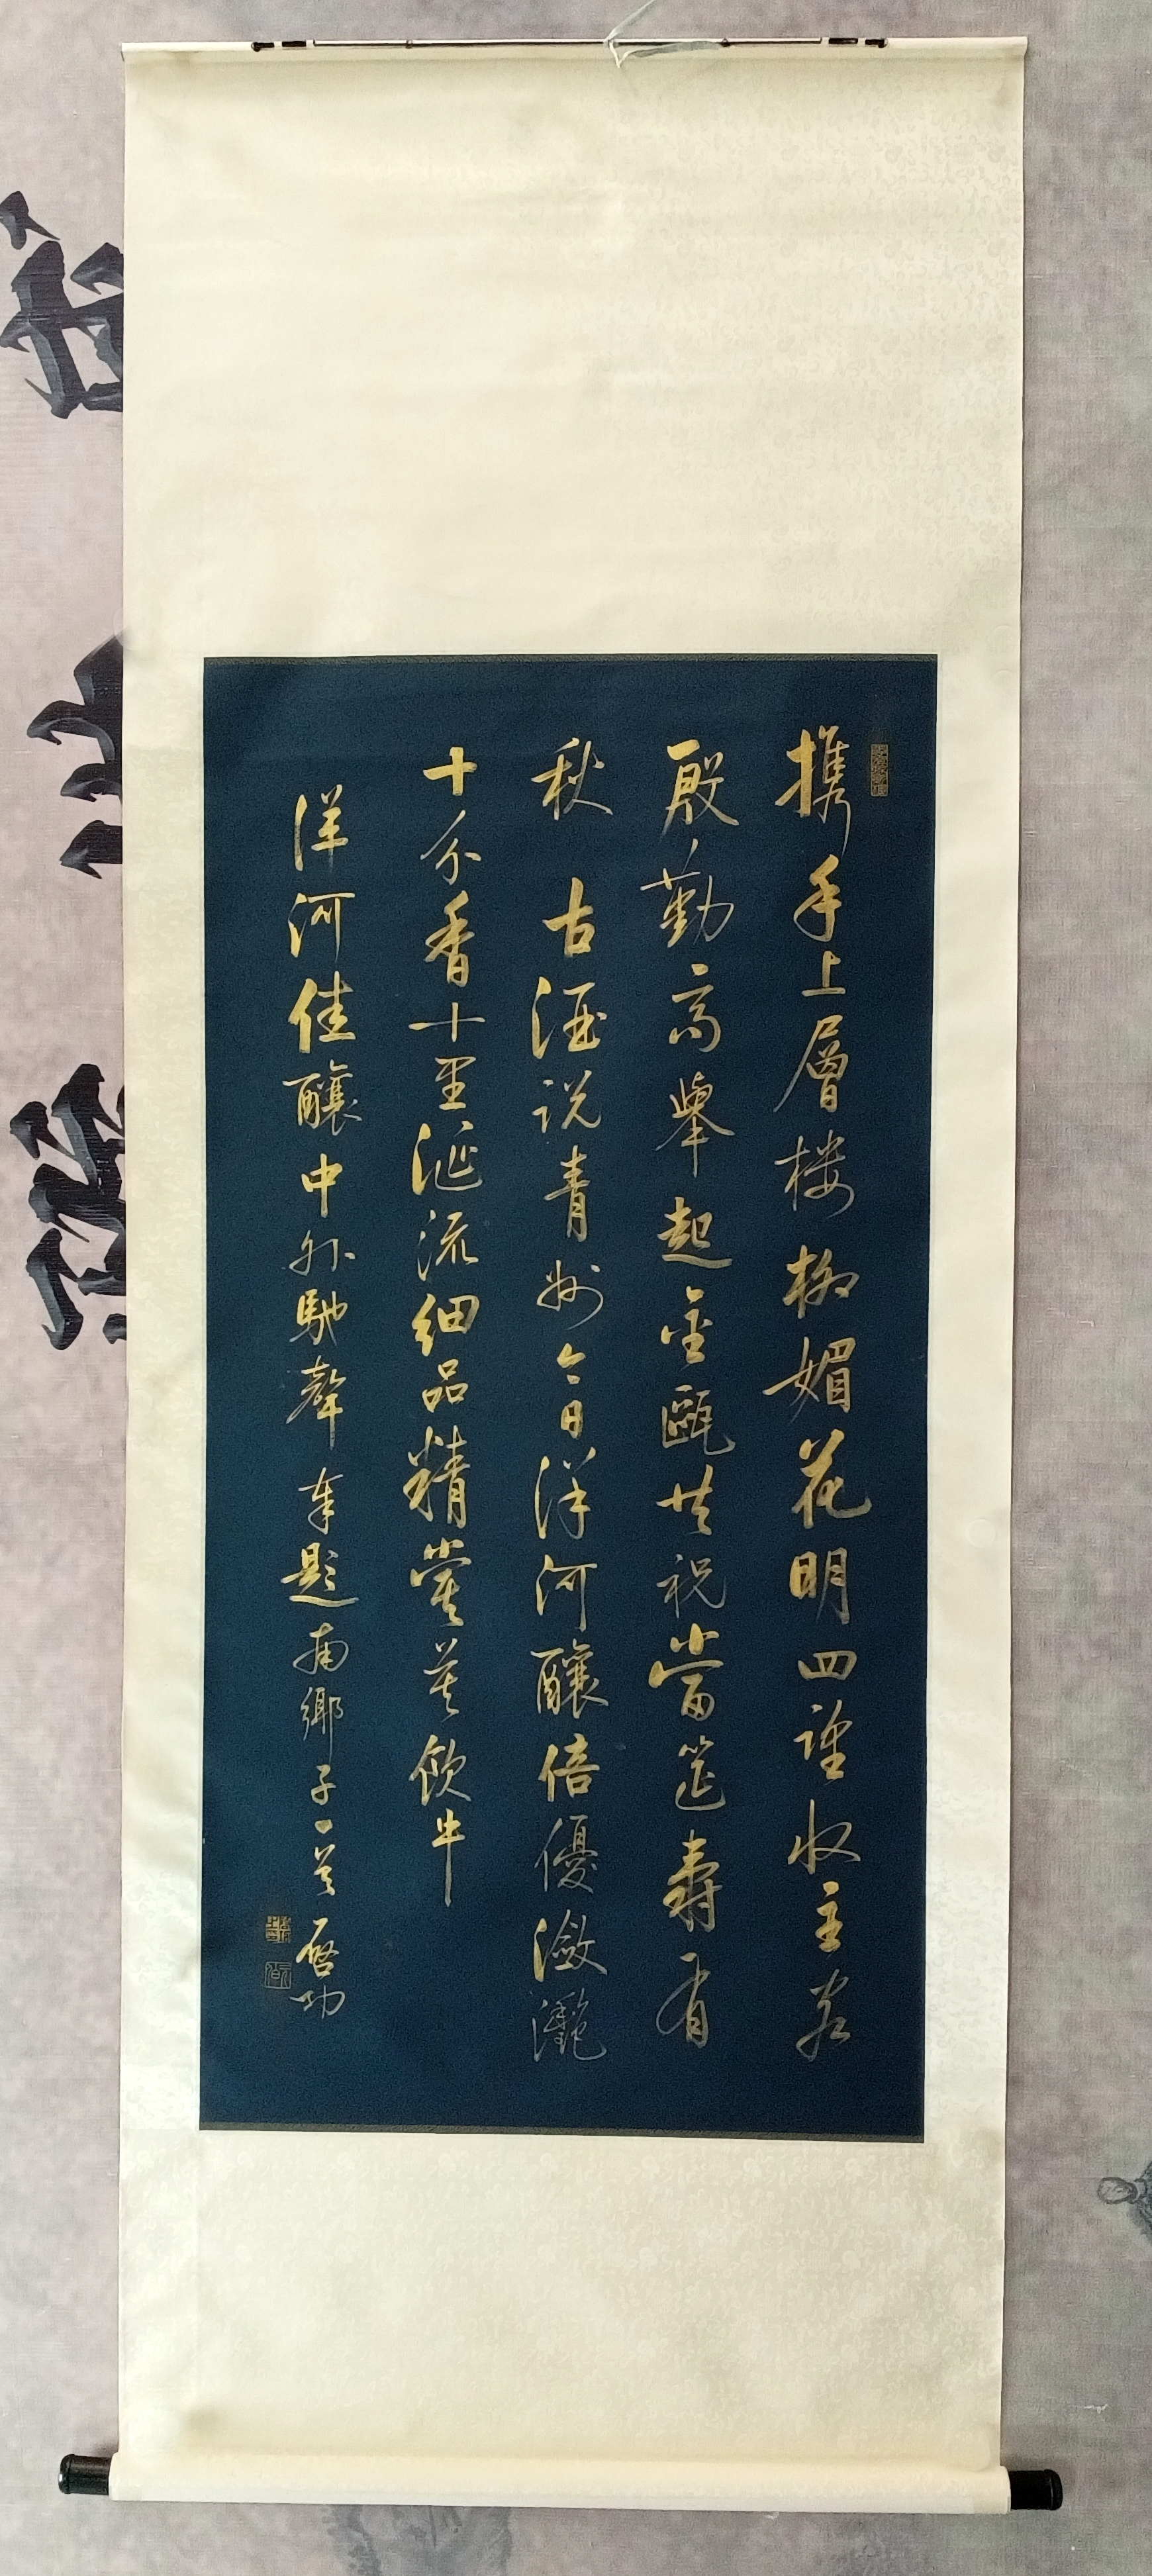 携手上層楼柳媚花明四望收主客
殷勤高舉起金甌共祝當筵壽有
秋 古酒説青州今日洋河釀倍優瀲灩
十分香十里涎流細品精嘗莫飲牛
洋河佳釀中外馳聲 奉題南鄉子一首 啓功